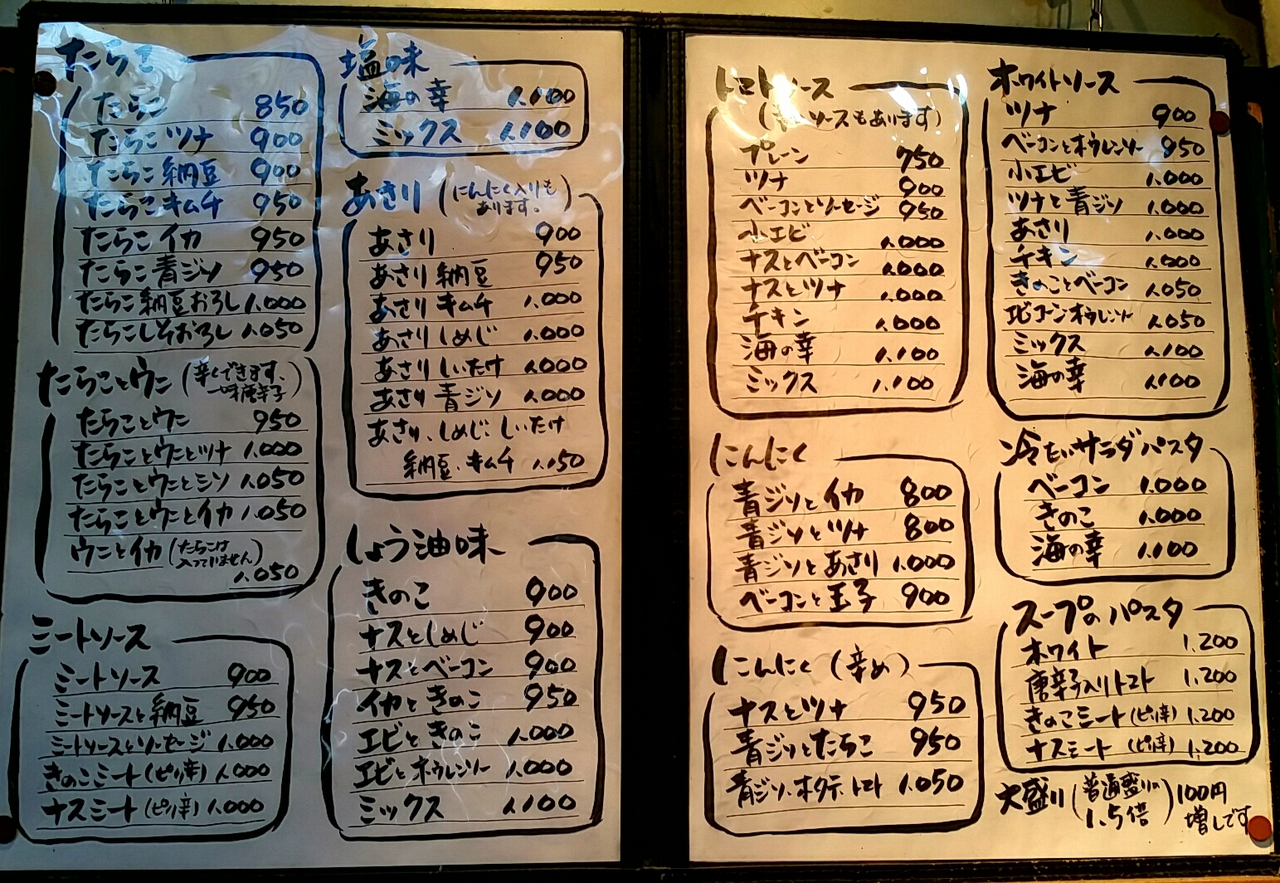 たらこ
たらこ 850
たらこ ツナ 900
たらこ 納豆 900
たらこ キムチ 950
たらこ イカ 950
たらこ 青ジソ 950
たらこ 納豆おろし 1.000
たらこしそおろし 1.050
たらことウニ (辛くできます、一味唐辛子)
たらことウニ 950
たらことウニとツナ 1.000
たらことウニとミソ 1.050
たらことウニとイカ 1.050
ウニとイカ (たらこは入っていません)
1.050
ミートソース
ミートソース 900
ミートソースと納豆 950
ミートソースとソーセージ 1.000
きのこミート (ピリ辛) 1.000
ナスミート (ピリ辛) 1.000
塩味
海の幸 1.100
ミックス 1.100
あさり (にんにく入りもあります。)
あさり 900
あさり 納豆 950
あさり キムチ 1.000
あさり しめじ 1.000
あさり しいたけ 1.000
あさり 青ジソ 1.000
あさり、しめじ、しいたけ
納豆、キムチ 1.150
しょう油味
きのこ 900
ナスとしめじ 900
ナスとベーコン 900
イカときのこ 950
エビときのこ 1.000
エビとホウレンソー 1.000
ミックス 1.100
トマトソース
ソースもあります)
プレーン 750
ツナ 900
ベーコンとソーセージ 950
小エビ 1.000
ナスとベーコン 1.000
ナスとツナ 1.000
チキン 1.000
海の幸 1.100
ミックス 1.100
にんにく
青ジソとイカ 800
青ジソとツナ 800
青ジソとあさり 1.000
ベーコンと玉子 900
にんにく (辛め)
ナスとツナ 950
青ジソとたらこ 950
青ジソ、ホタテ、トマト 1.050
ホワイトソース
ツナ 900
ベーコンとホウレンソー 950
小エビ 1.000
ツナと青ジソ 1.000
あさり 1.000
チキン 1.000
きのことベーコン 1.050
コーン・ホウレンソー 1.050
ミックス 1.100
海の幸 1.100
冷たいサラダパスタ
ベーコン 1.000
きのこ 1.000
海の幸 1.100
スープのパスタ
ホワイト 1.200
唐辛子入りトマト 1.200
きのこミート (ピリ辛) 1.200
ナスミート (ピリ辛) 1.200
大盛り (普通盛りの1.5倍) 100円増しです